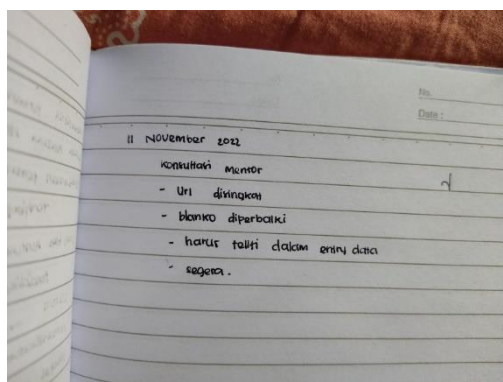 No.
Date :
11 November 2022
Konsultasi mentor
- Url disingkat
- blanko diperbaiki
- harus teliti dalam entry data
- segera.